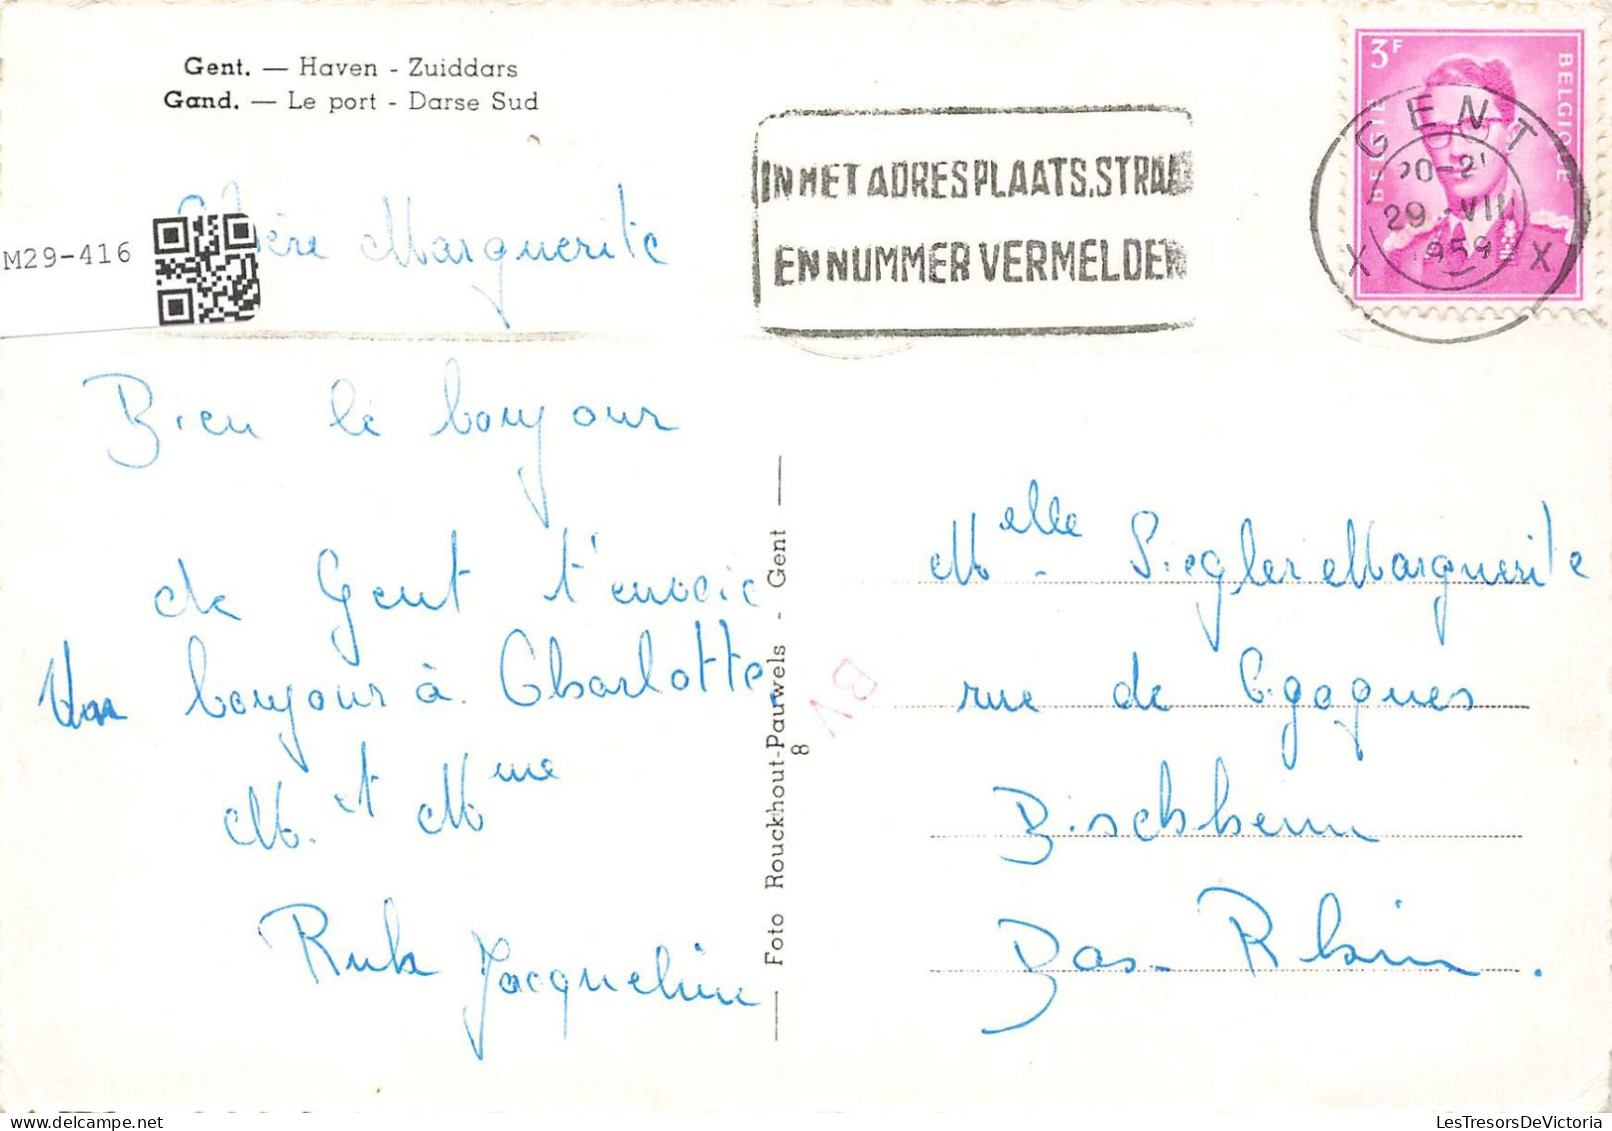 Gent. — Haven - Zuiddars
Gand. — Le port - Darse Sud
M29-416
Chère Marguerite
Bien le bonjour
de Gent t'envoie
Un bonjour à Charlotte
M. et Mme
Ruhl Jacqueline
Foto Rouckhout-Pauwels - Gent
8
BV
IN HET ADRES PLAATS, STRAA
EN NUMMER VERMELDEN
3F
BELGIE
BELGIQUE
GENT
20-2
29 -VII
1959
X X
Melle - Siegler Marguerite
rue de Cigognes
Bischheim
Bas-Rhin.
LesTresorsDeVictoria